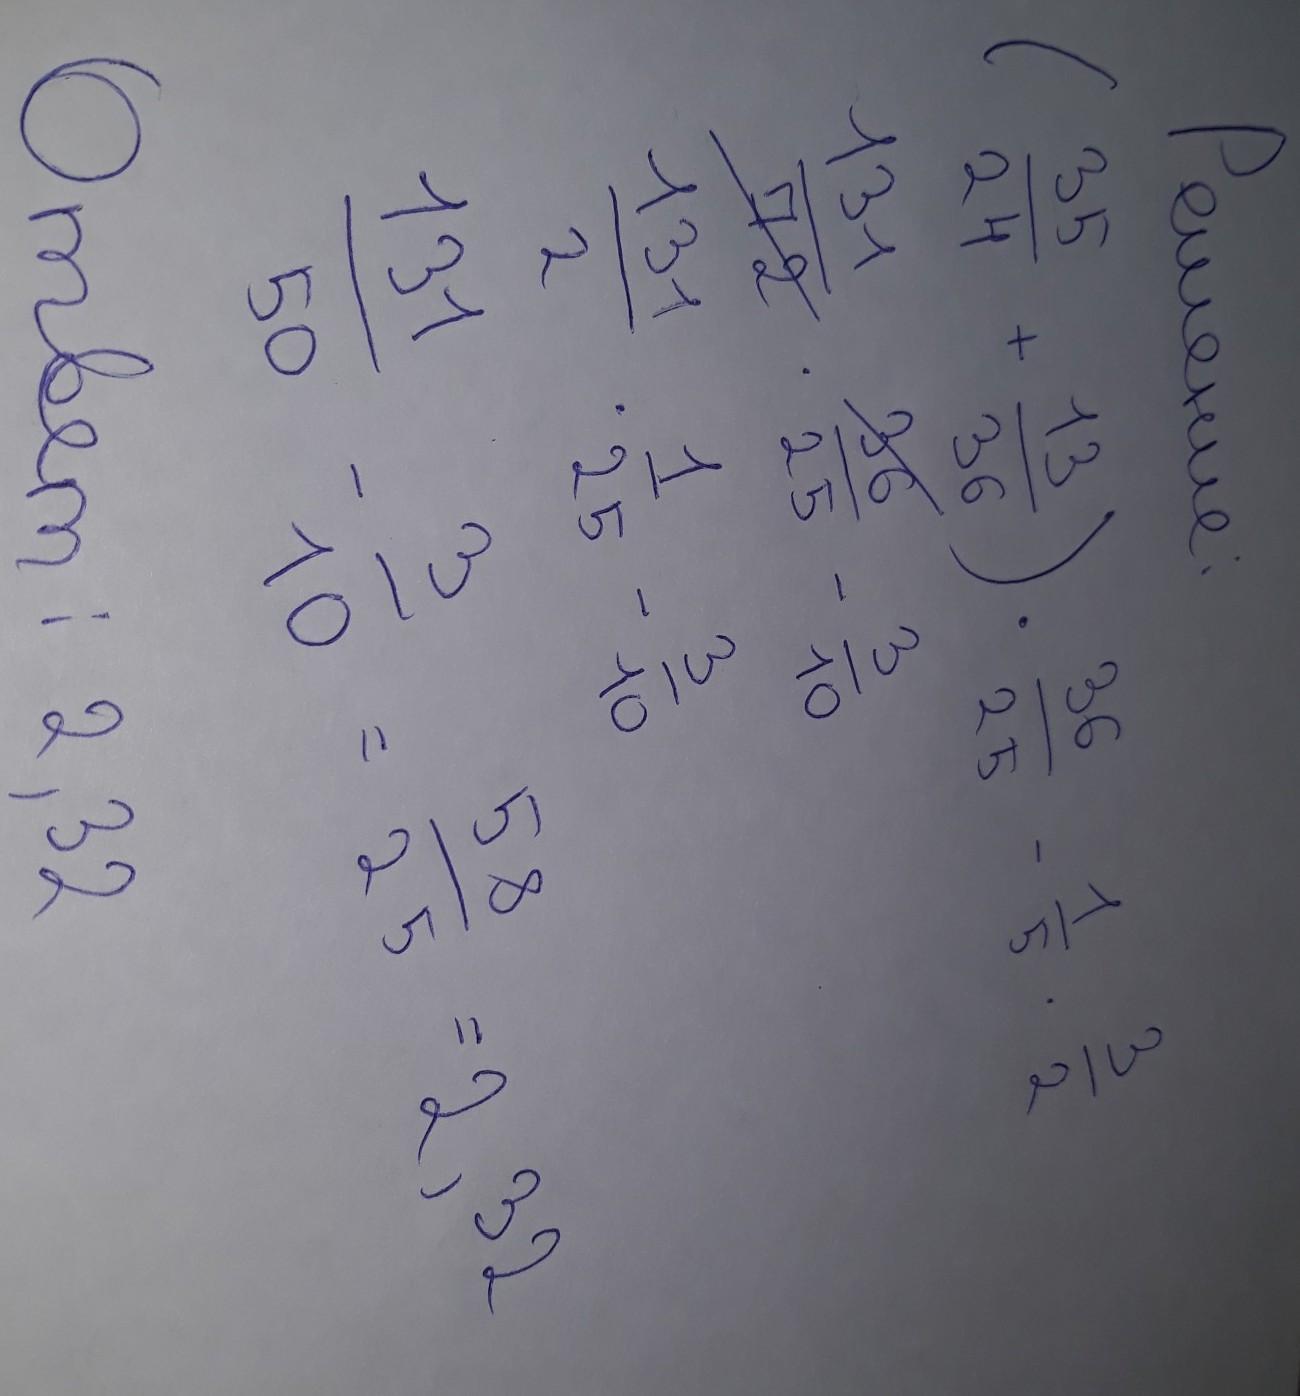 Решение:
(35/24 + 13/36) · 36/25 - 1/5 · 3/2
131/72 · 36/25 - 3/10
131/2 · 1/25 - 3/10
131/50 - 3/10 = 58/25 = 2,32
Ответ: 2,32